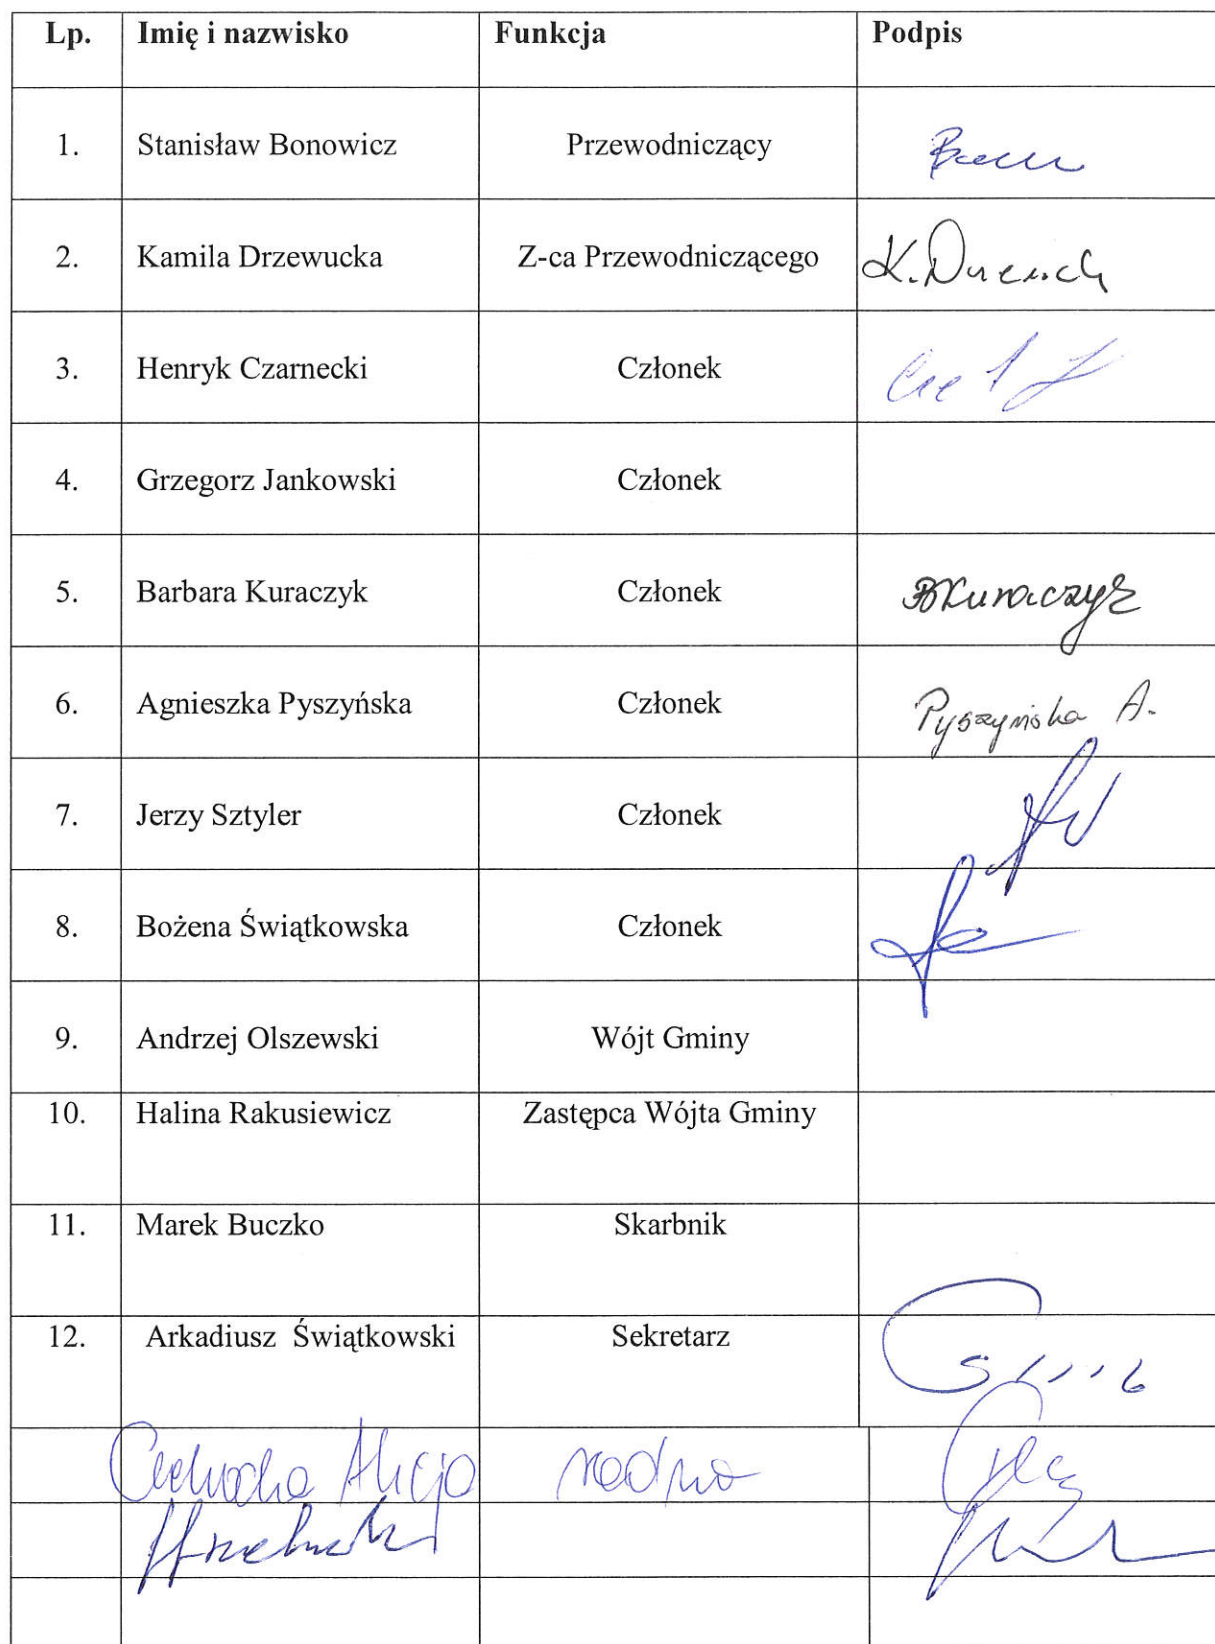 Lp. Imię i nazwisko Funkcja Podpis
1. Stanisław Bonowicz Przewodniczący
2. Kamila Drzewucka Z-ca Przewodniczącego
3. Henryk Czarnecki Członek
4. Grzegorz Jankowski Członek
5. Barbara Kuraczyk Członek BKuraczyk
6. Agnieszka Pyszyńska Członek Pyszyńska A.
7. Jerzy Sztyler Członek
8. Bożena Świątkowska Członek
9. Andrzej Olszewski Wójt Gminy
10. Halina Rakusiewicz Zastępca Wójta Gminy
11. Marek Buczko Skarbnik
12. Arkadiusz Świątkowski Sekretarz
Alicja radna